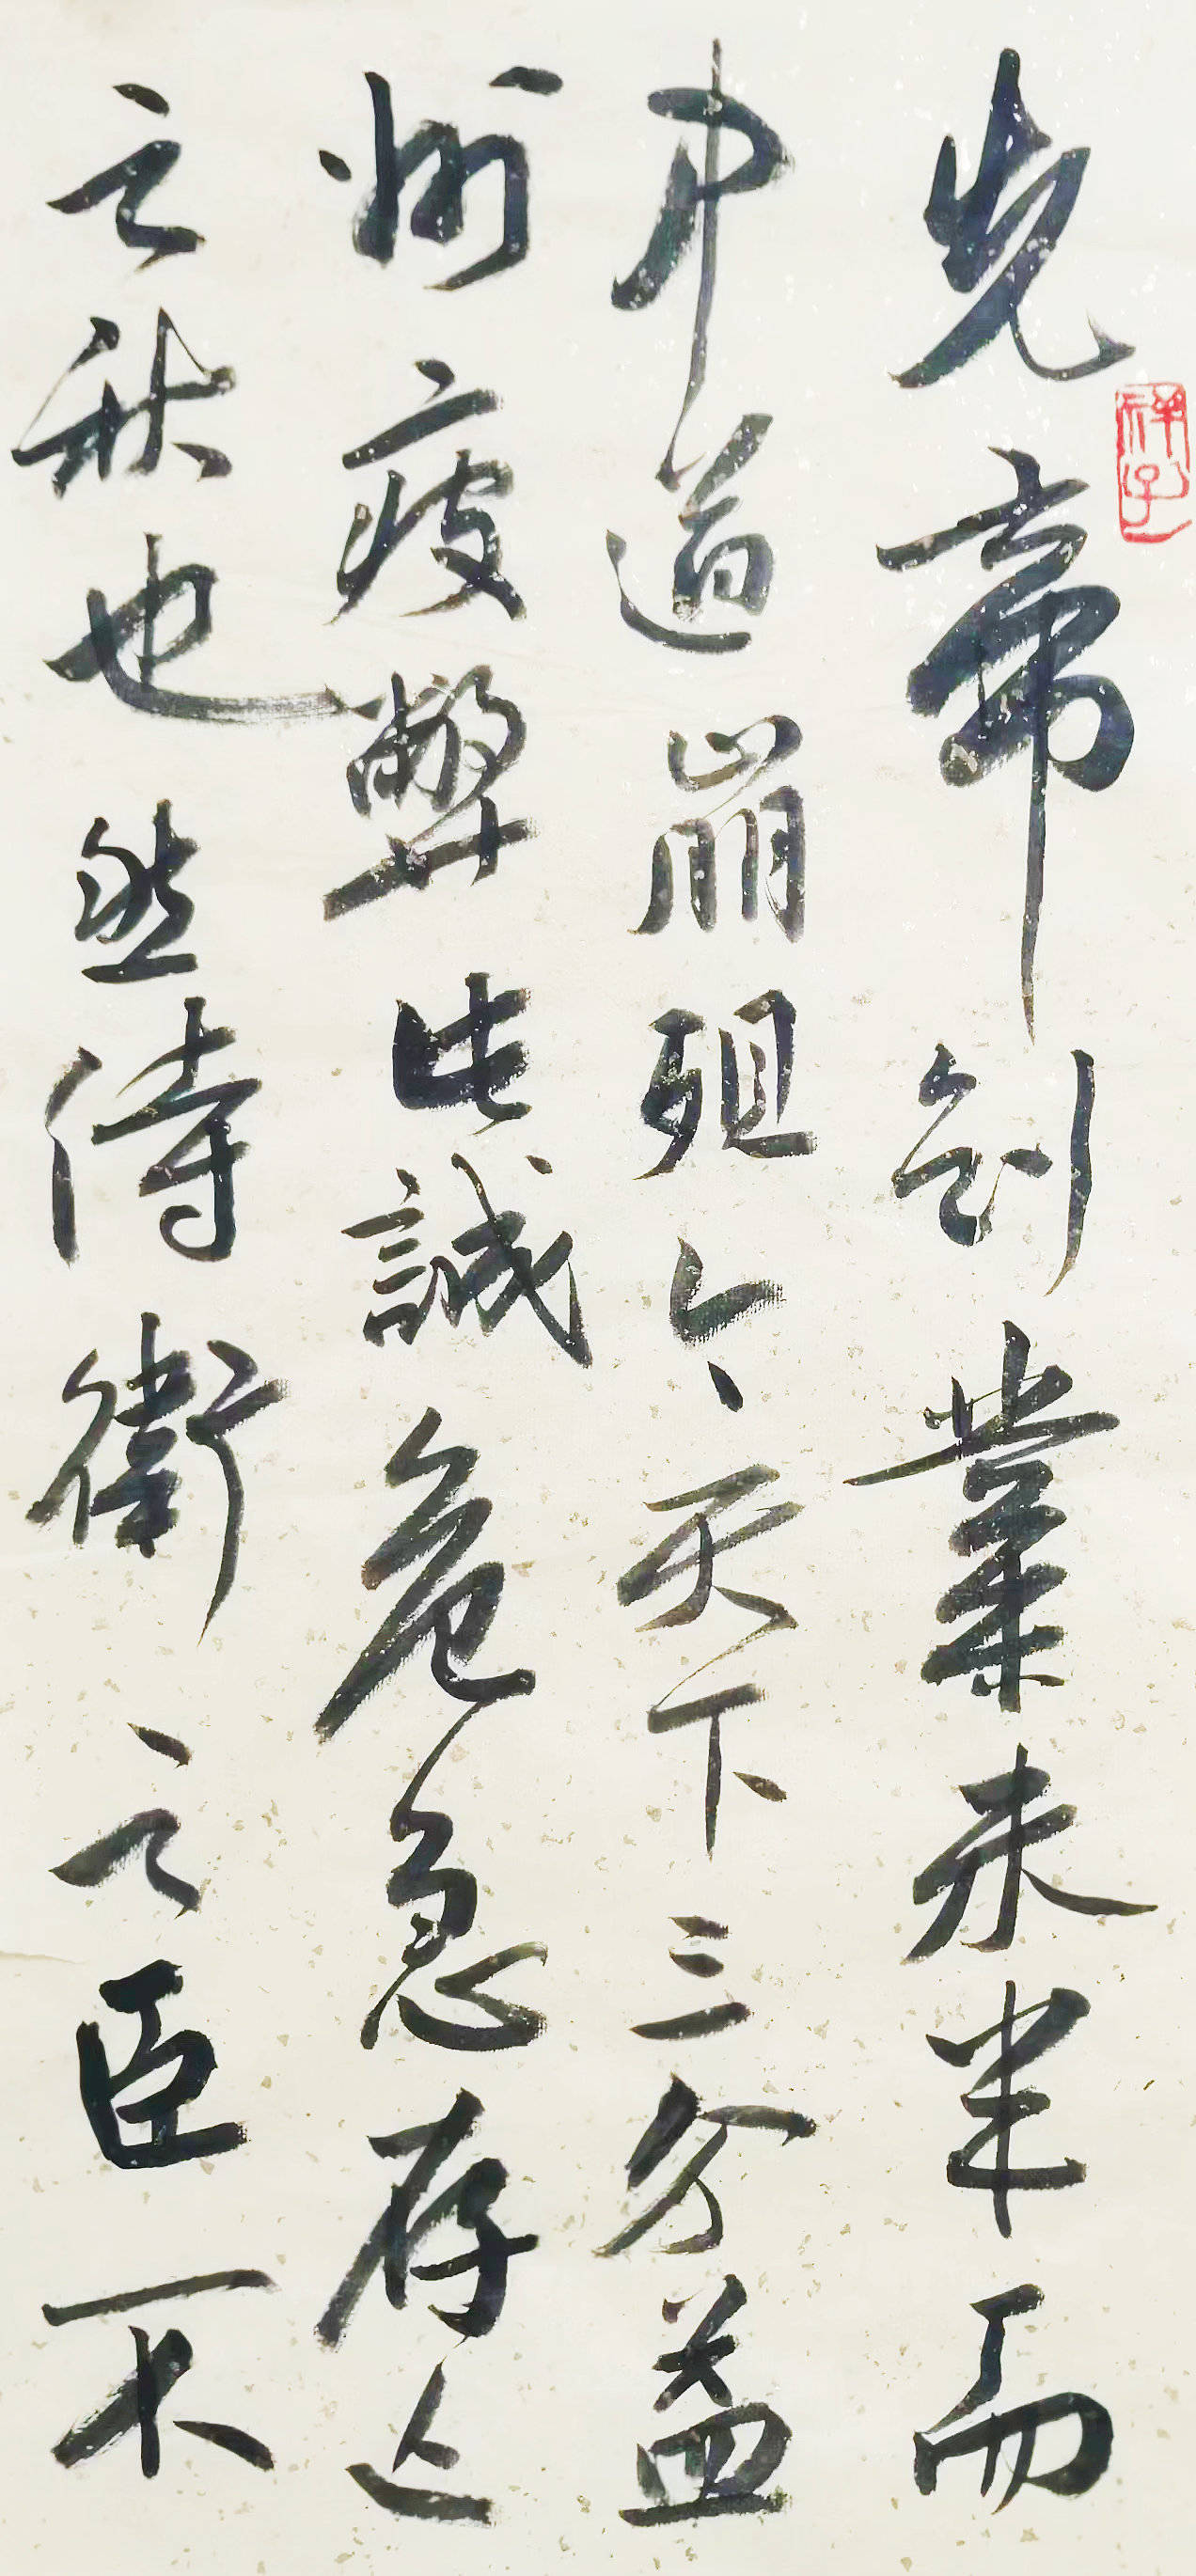 先帝創業未半而
中道崩殂今天下三分益
州疲弊此誠危急存亡
之秋也然侍衛之臣不